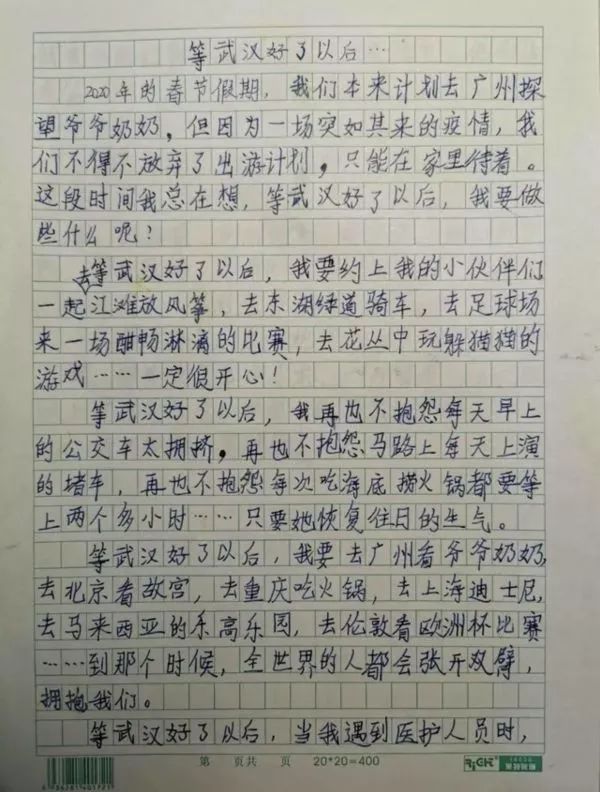 等武汉好了以后…
2020年的春节假期，我们本来计划去广州探
望爷爷奶奶，但因为一场突如其来的疫情，我
们不得不放弃了出游计划，只能在家里待着。
这段时间我总在想，等武汉好了以后，我要做
些什么呢？
等武汉好了以后，我要约上我的小伙伴们
一起去江滩放风筝，去东湖绿道骑车，去足球场
来一场酣畅淋漓的比赛，去花丛中玩躲猫猫的
游戏……一定很开心！
等武汉好了以后，我再也不抱怨每天早上
的公交车太拥挤，再也不抱怨马路上每天上演
的堵车，再也不抱怨每次吃海底捞火锅都要等
上两个多小时……只要她恢复往日的生气。
等武汉好了以后，我要去广州看爷爷奶奶，
去北京看故宫，去重庆吃火锅，去上海迪士尼，
去马来西亚的乐高乐园，去伦敦看欧洲杯比赛
……到那个时候，全世界的人都会张开双臂，
拥抱我们。
等武汉好了以后，当我遇到医护人员时，
第 页共 页 20*20=400